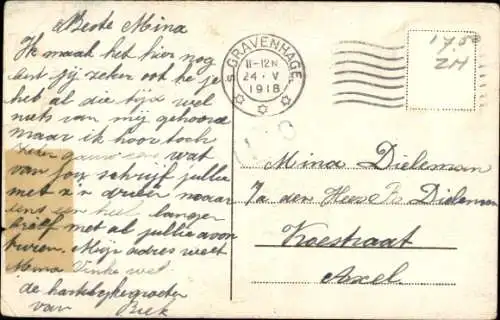 Beste Mina
Ik maak het hier nog
best jij zeker ook he je
heb al die tijd wel
niets van mij gehoord
maar ik hoor toch
zeker gauw eens wat
van jou schrijf jullie
met z'n drieën maar
eens een heel langer
brief met al jullie avon
turen. Mijn adres weet
Mina Vinke wel
de hartelijke groeten
van Riek
'S GRAVENHAGE
11-12 N
24 · V
1918
17,50
ZH
Mina Dieleman
p/a den Heer Dieleman
Koestraat
Axel.